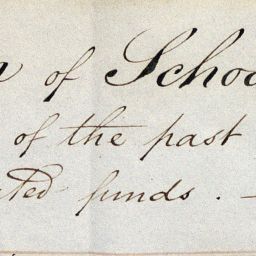 of Schoo
of the past
ted funds. –